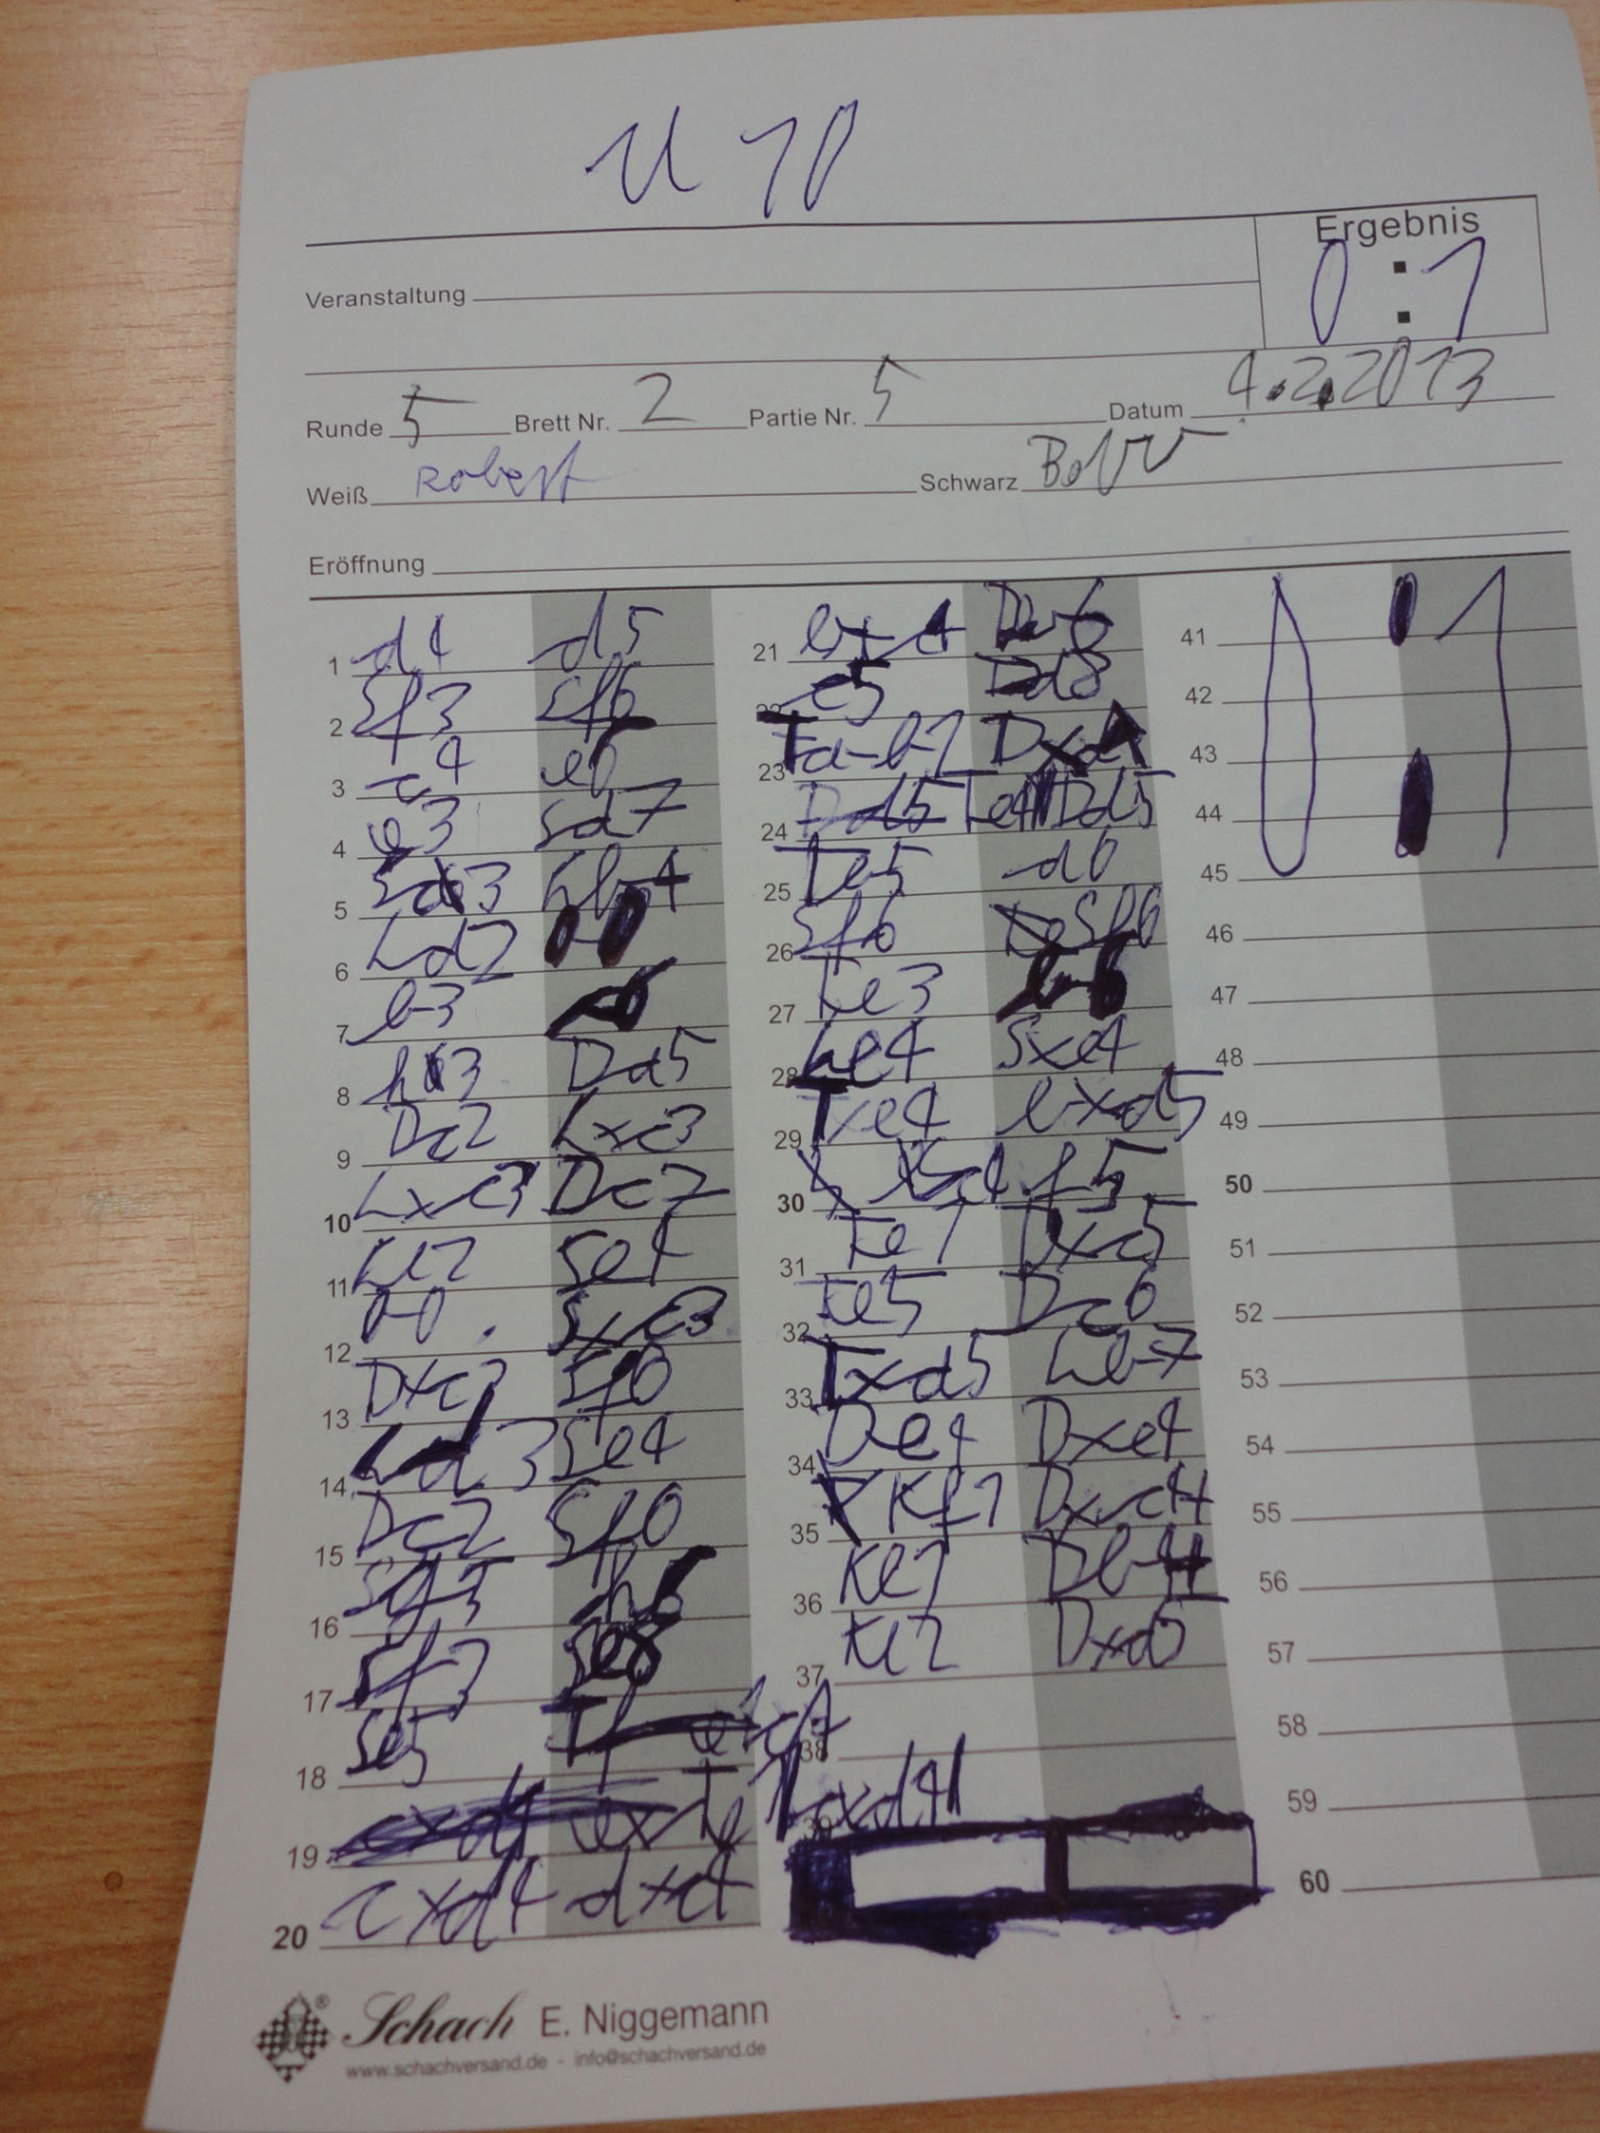 U 10
Ergebnis
0 : 1
Veranstaltung
Runde 5 Brett Nr. 2 Partie Nr. 5 Datum 4.2.2013
Weiß Robert Schwarz
Eröffnung
1 d4 d5
2 Sf3 Sf6
3 c4 e6
4 e3 Sd7
5 Sc3 Lb4
6 Ld2 0-0
7 b3
8 h3 Da5
9 Dc2 Lxc3
10 Lxc3 Dc7
11 Le2 Se4
12 0-0 Sxc3
13 Dxc3 Sf6
14 Ld3 Se4
15 Dc2 Sf6
16 Sg5 h6
17 Sf3
18 Se5
19 cxd4
20 cxd4 dxc4
21 bxc4
22 c5 Dd8
23 Ta-b1 Dxd4
24 Dd5
25 Te5
26 Sf6 Sf6
27 Te3 b6
28 Le4 Sxe4
29 Txe4 bxd5
30 f5
31 Te1 Dxc5
32 Te5 Dc6
33 Txd5 Lb7
34 De4 Dxe4
35 Kf1 Dxc4
36 Ke1 Db4
37 Ke2 Dxd5
38
39
41 0 : 1
42
43
44
45
46
47
48
49
50
51
52
53
54
55
56
57
58
59
60
Schach E. Niggemann
www.schachversand.de - info@schachversand.de